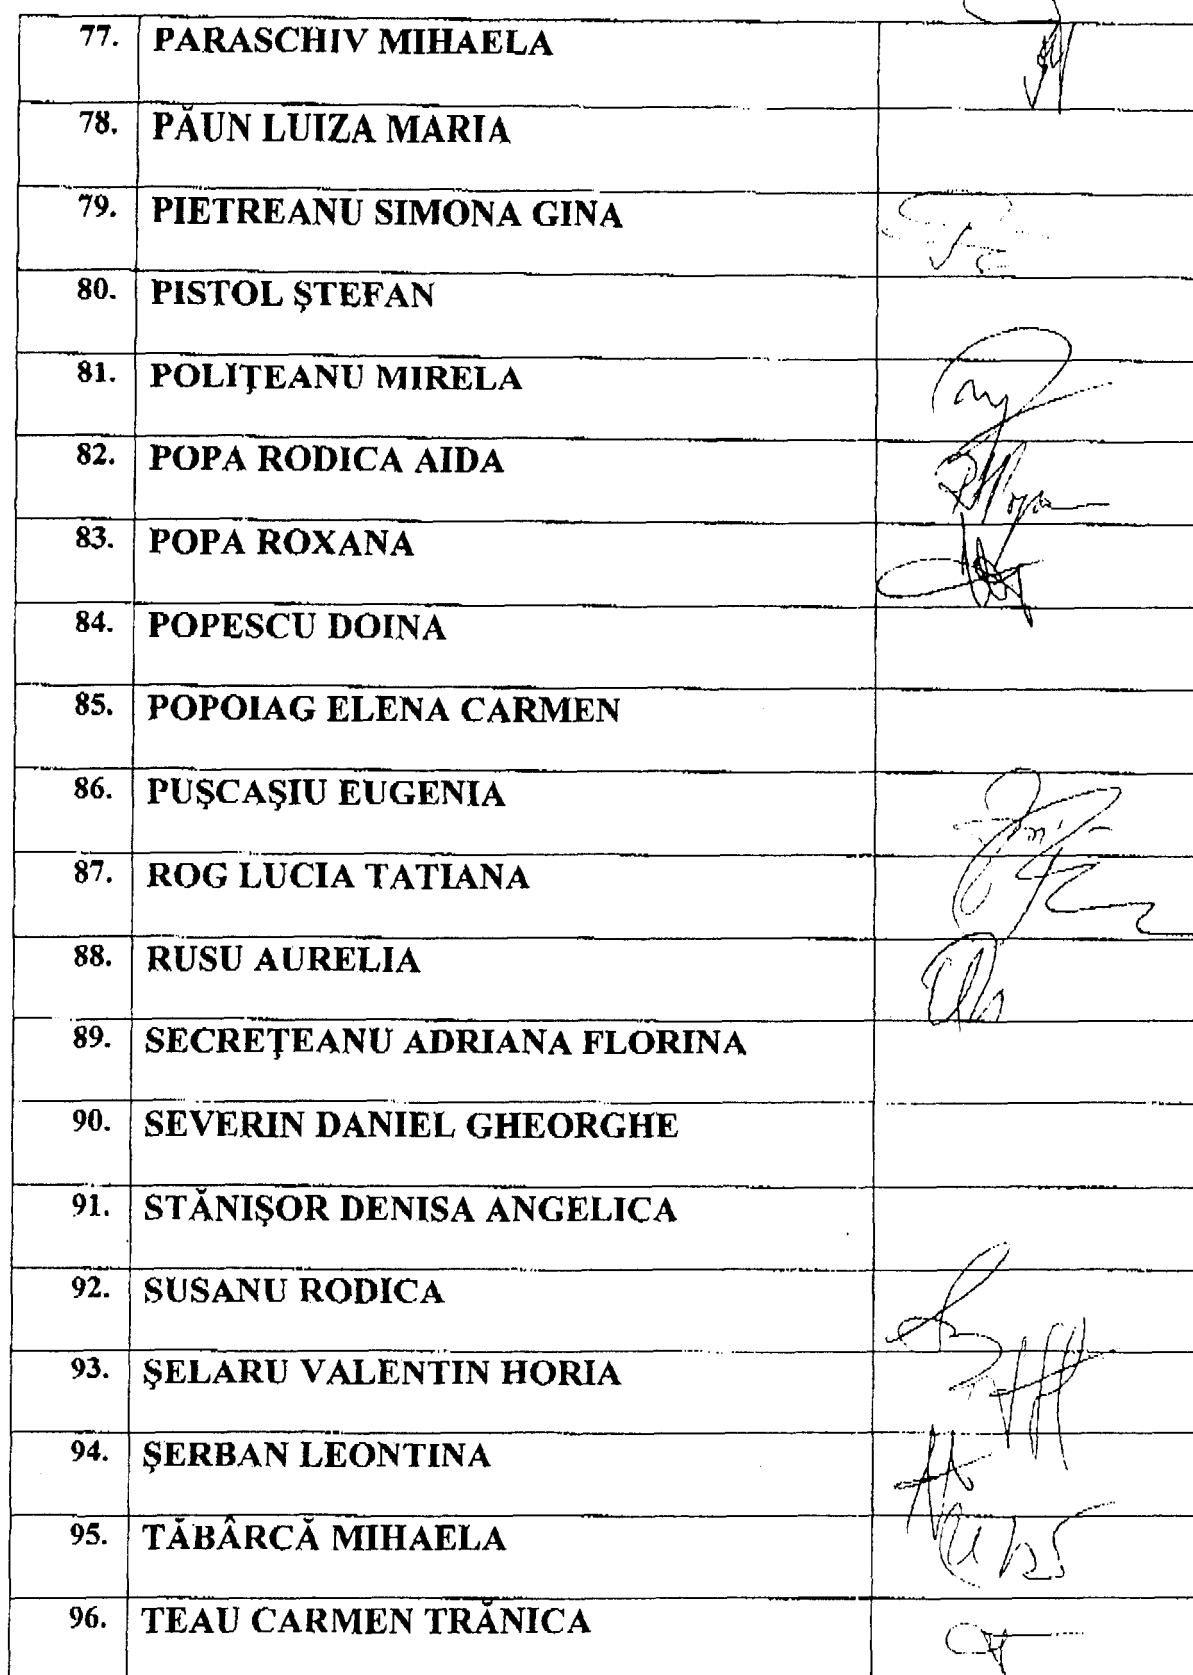 77. PARASCHIV MIHAELA
78. PĂUN LUIZA MARIA
79. PIETREANU SIMONA GINA
80. PISTOL ŞTEFAN
81. POLIŢEANU MIRELA
82. POPA RODICA AIDA
83. POPA ROXANA
84. POPESCU DOINA
85. POPOIAG ELENA CARMEN
86. PUŞCAŞIU EUGENIA
87. ROG LUCIA TATIANA
88. RUSU AURELIA
89. SECREŢEANU ADRIANA FLORINA
90. SEVERIN DANIEL GHEORGHE
91. STĂNIŞOR DENISA ANGELICA
92. SUSANU RODICA
93. ŞELARU VALENTIN HORIA
94. ŞERBAN LEONTINA
95. TĂBÂRCĂ MIHAELA
96. TEAU CARMEN TRĂNICA